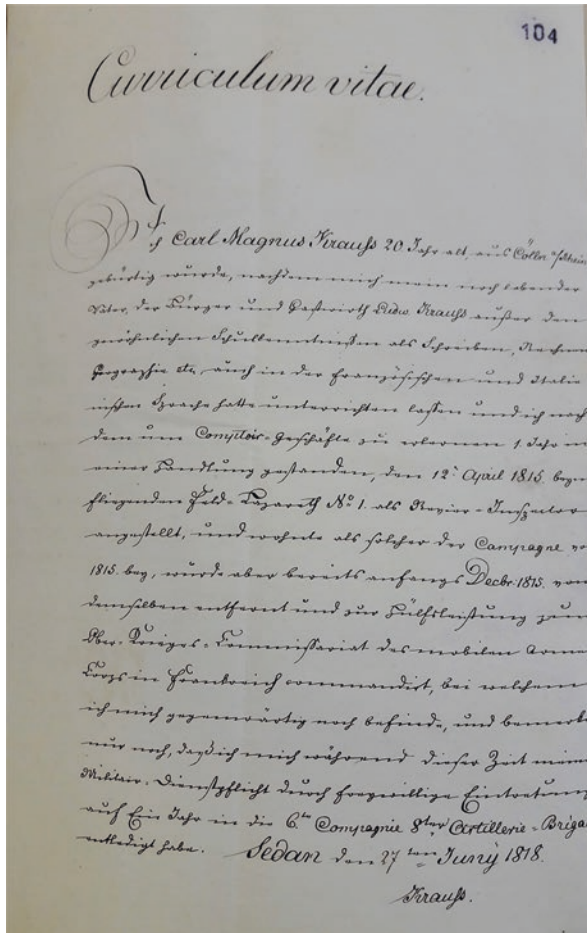 104
Curriculum vitae.
Ich Carl Magnus Krauss 20 Jahr alt, aus Cölln a/Rhein
gebürtig wurde, nachdem mich mein noch lebender
Vater, der Bürger und Gastwirth Ludw. Krauss außer den
gewöhnlichen Schulkenntnißen als Schreiben, Rechnen
Geographie etc. auch in der französischen und Italie
nischen Sprache hatte unterrichten lassen und ich nach
dem um Comptoir-Geschäfte zu erlernen 1. Jahr in
einer Handlung gestanden, den 12t April 1815. beym
fliegenden Feld-Lazareth No 1. als Revier-Inspector
angestellt, und wohnte als solcher der Campagne vo
1815. bey, wurde aber bereits anfangs Decbr: 1815. von
demselben entfernt und zur Hülfsleistung zum
Ober-Krieges-Commissariat des mobilen Armee
Corps in Frankreich commandirt, bei welchem
ich mich gegenwärtig noch befinde, und bemerke
nur noch, daß ich mich während dieser Zeit meine
Militair-Dienstpflicht durch freywillige Eintretung
auf Ein Jahr in die 6.te Compagnie 8ter Artillerie-Briga
entledigt habe. Sedan den 27ten Juny 1818.
Krauss.